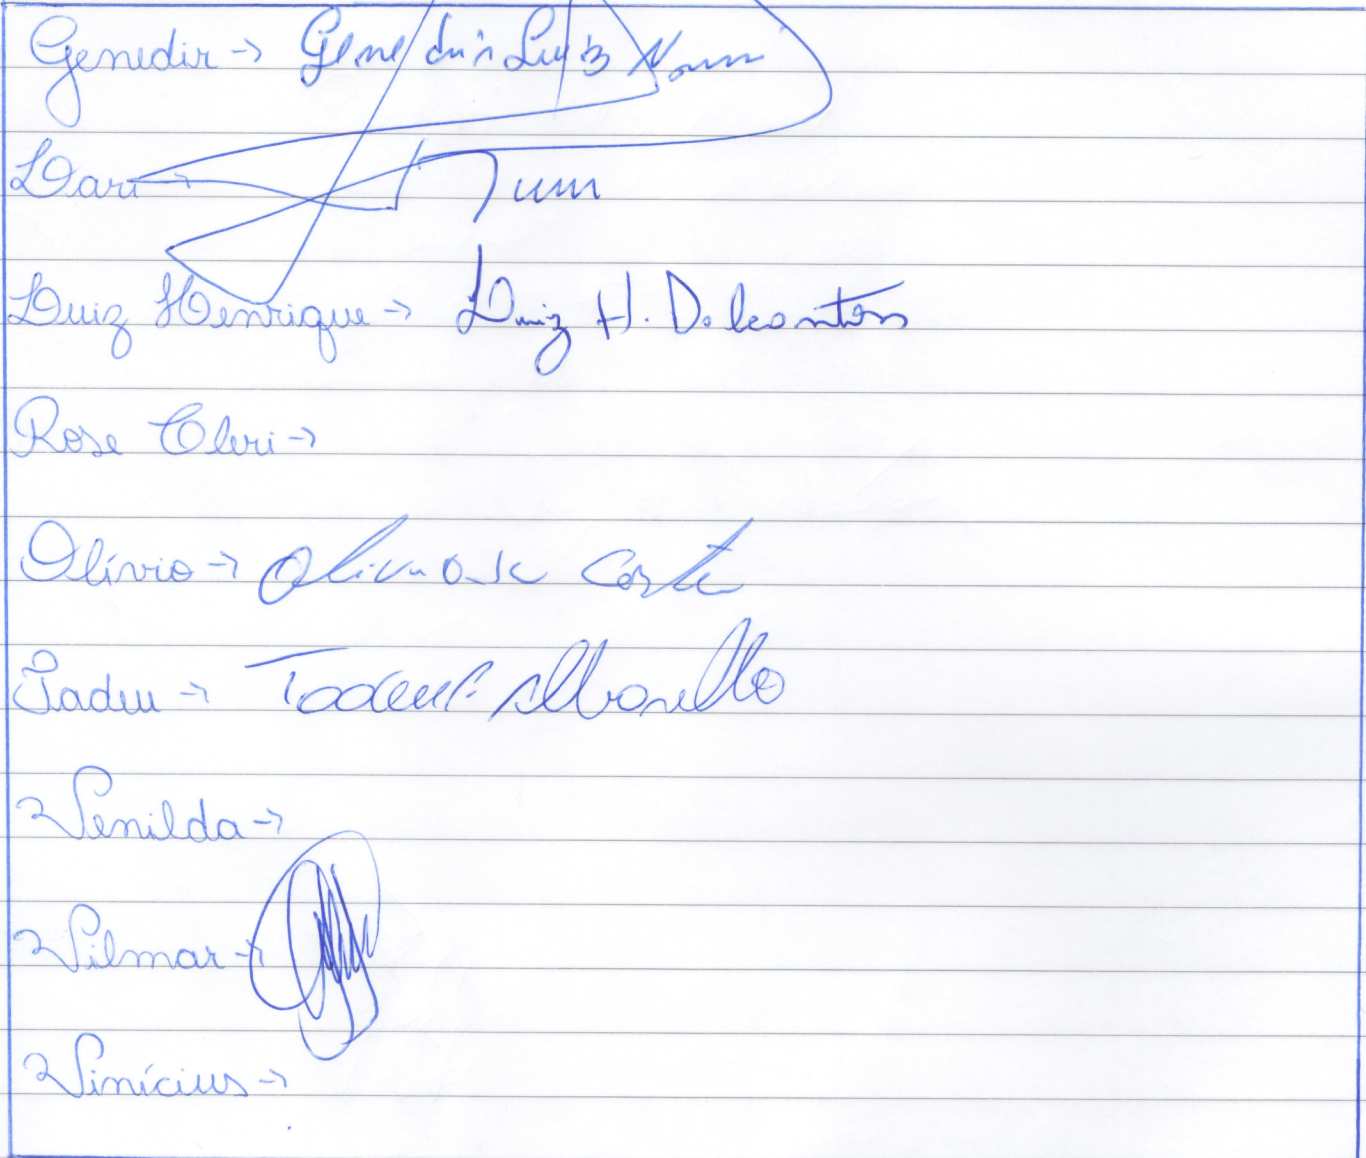 Genedir → Genedir Luiz
Dari →
Luiz Henrique → Luiz H.
Rose Cleri →
Olívio → Olivio da Costa
Tadeu → Tadeu Albarello
Venilda →
Vilmar →
Vinícius →